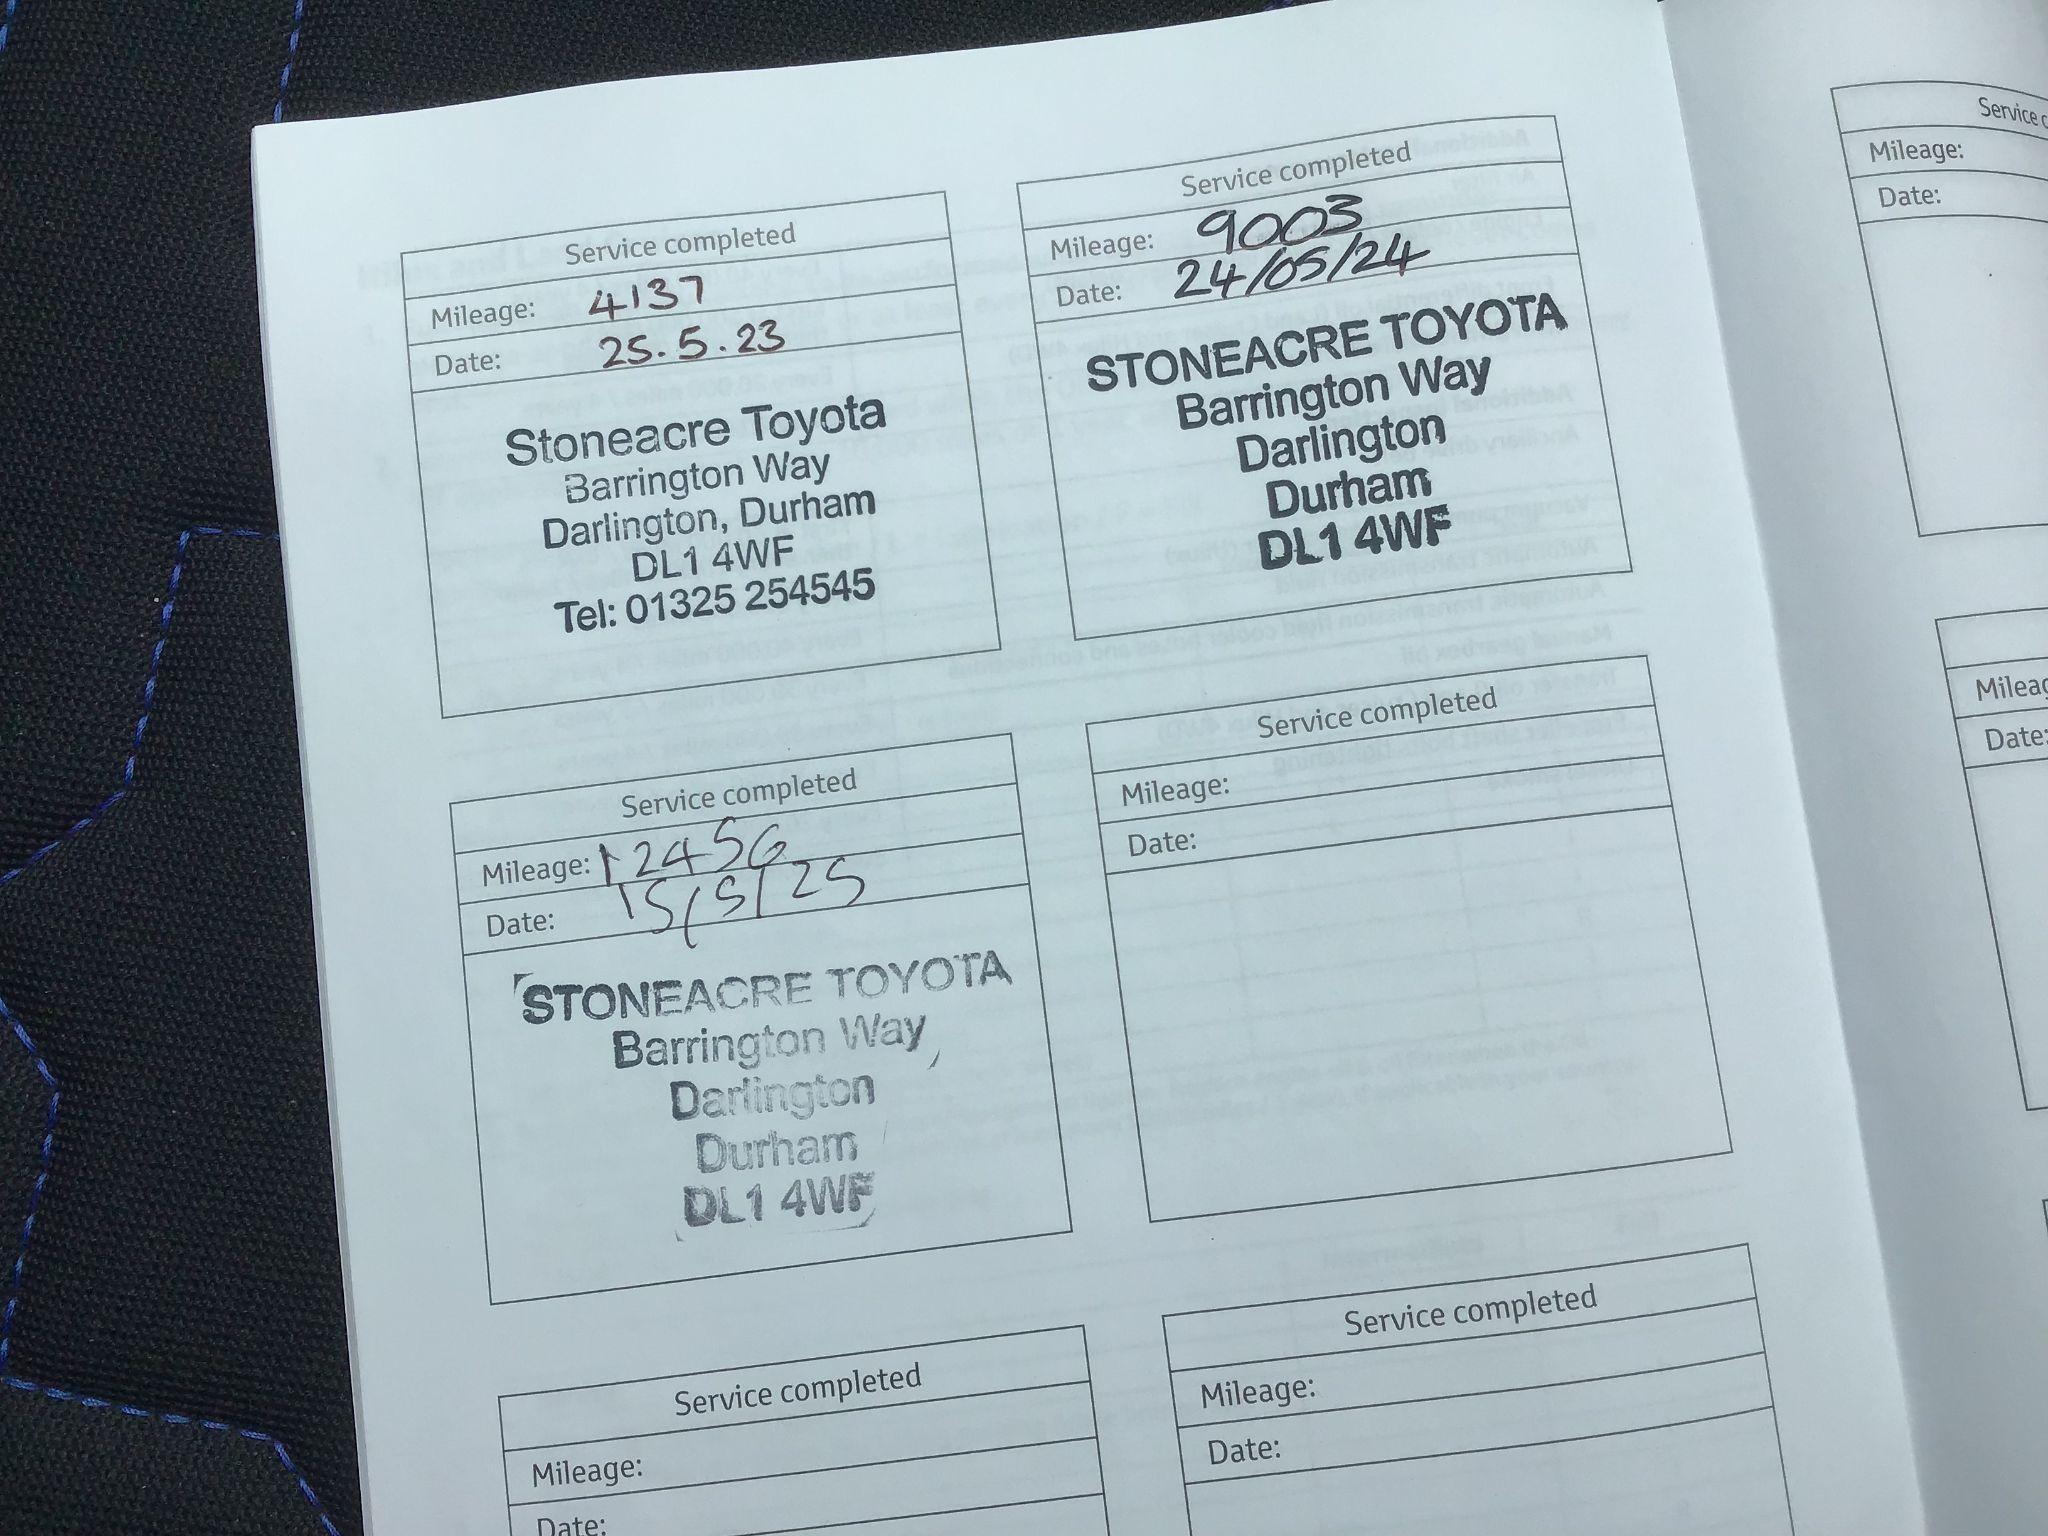 Service completed
Mileage: 4137
Date: 25.5.23
Stoneacre Toyota
Barrington Way
Darlington, Durham
DL1 4WF
Tel: 01325 254545
Service completed
Mileage: 9003
Date: 24/05/24
STONEACRE TOYOTA
Barrington Way
Darlington
Durham
DL1 4WF
Service completed
Mileage: 12456
Date: 15/5/25
STONEACRE TOYOTA
Barrington Way
Darlington
Durham
DL1 4WF
Service completed
Mileage:
Date:
Service completed
Mileage:
Date:
Service completed
Mileage:
Date:
Service
Mileage:
Date:
Date: